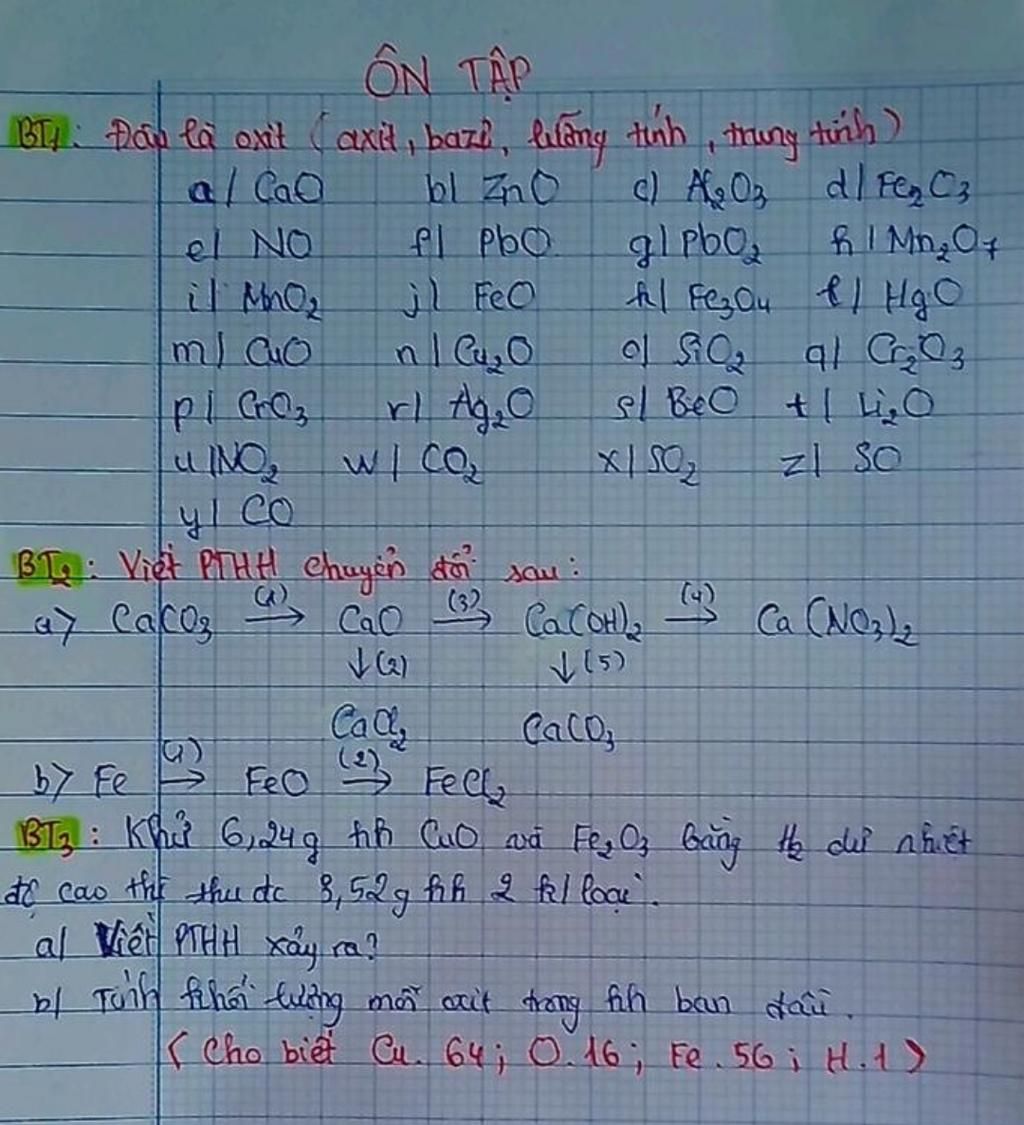 ÔN TẬP
BT1: Đâu là oxit (axit, bazơ, lưỡng tính, trung tính)
a/ CaO b/ ZnO c) Al2O3 d/ Fe2O3
e/ NO f/ PbO g/ PbO2 h/ Mn2O7
i/ MnO2 j/ FeO k/ Fe3O4 l/ HgO
m/ CuO n/ Cu2O o/ SiO2 q/ Cr2O3
p/ CrO3 r/ Ag2O s/ BeO t/ Li2O
u/ NO2 w/ CO2 x/ SO2 z/ SO
y/ CO
BT2: Viết PTHH chuyển đổi sau:
a> CaCO3 (1)→ CaO (3)→ Ca(OH)2 (4)→ Ca(NO3)2
↓(2) ↓(5)
CaCl2 CaCO3
b> Fe (1)→ FeO (2)→ FeCl2
BT3: Khử 6,24g hh CuO và Fe2O3 bằng H2 dư nhiệt
độ cao thì thu dc 3,52g hh 2 k/loại.
a/ Viết PTHH xảy ra?
b/ Tính khối lượng mỗi oxit trong hh ban đầu.
(Cho biết Cu. 64; O.16; Fe.56; H.1)